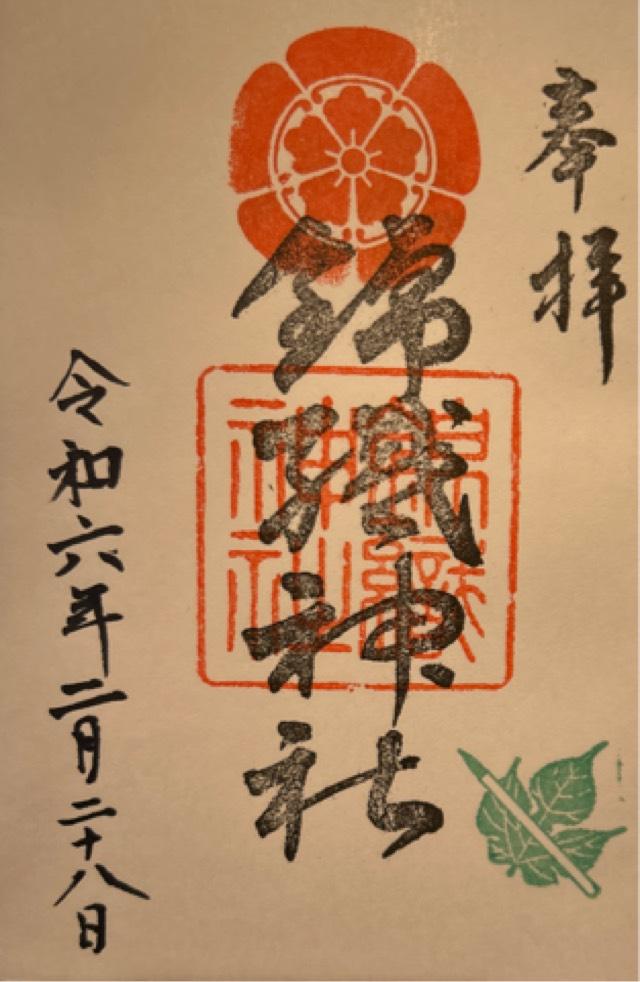 奉拝
錦織神社
錦織神社
令和六年二月二十八日